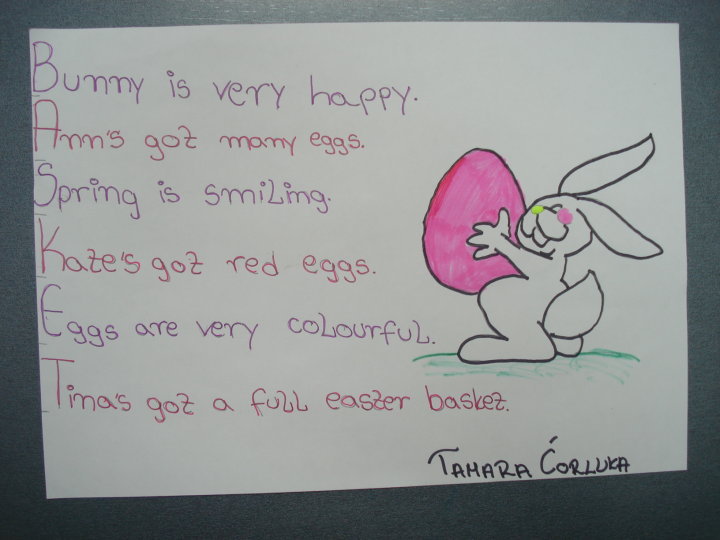 Bunny is very happy.
Ann's got many eggs.
Spring is smiling.
Kate's got red eggs.
Eggs are very colourful.
Tina's got a full easter basket.
TAMARA ĆORLUKA